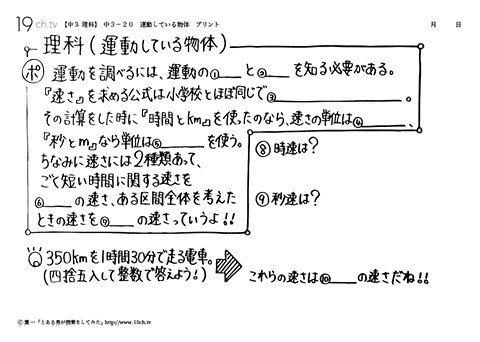 19ch.tv 【中3 理科】 中3-20 運動している物体 プリント 月 日
理科(運動している物体)
ポ 運動を調べるには、運動の①____と②____を知る必要がある。
『速さ』を求める公式は小学校とほぼ同じで③____________________。
その計算をした時に『時間とkm』を使ったのなら、速さの単位は④______、
『秒とm』なら単位は⑤______を使う。
ちなみに速さには2種類あって、
ごく短い時間に関する速さを
⑥____の速さ、ある区間全体を考えた
ときの速さを⑦____の速さっていうよ!!
⑧ 時速は?
⑨ 秒速は?
350kmを1時間30分で走る電車。
(四捨五入して整数で答えよう!)
これらの速さは⑩____の速さだね!!
© 葉一「とある男が授業をしてみた」http://www.19ch.tv